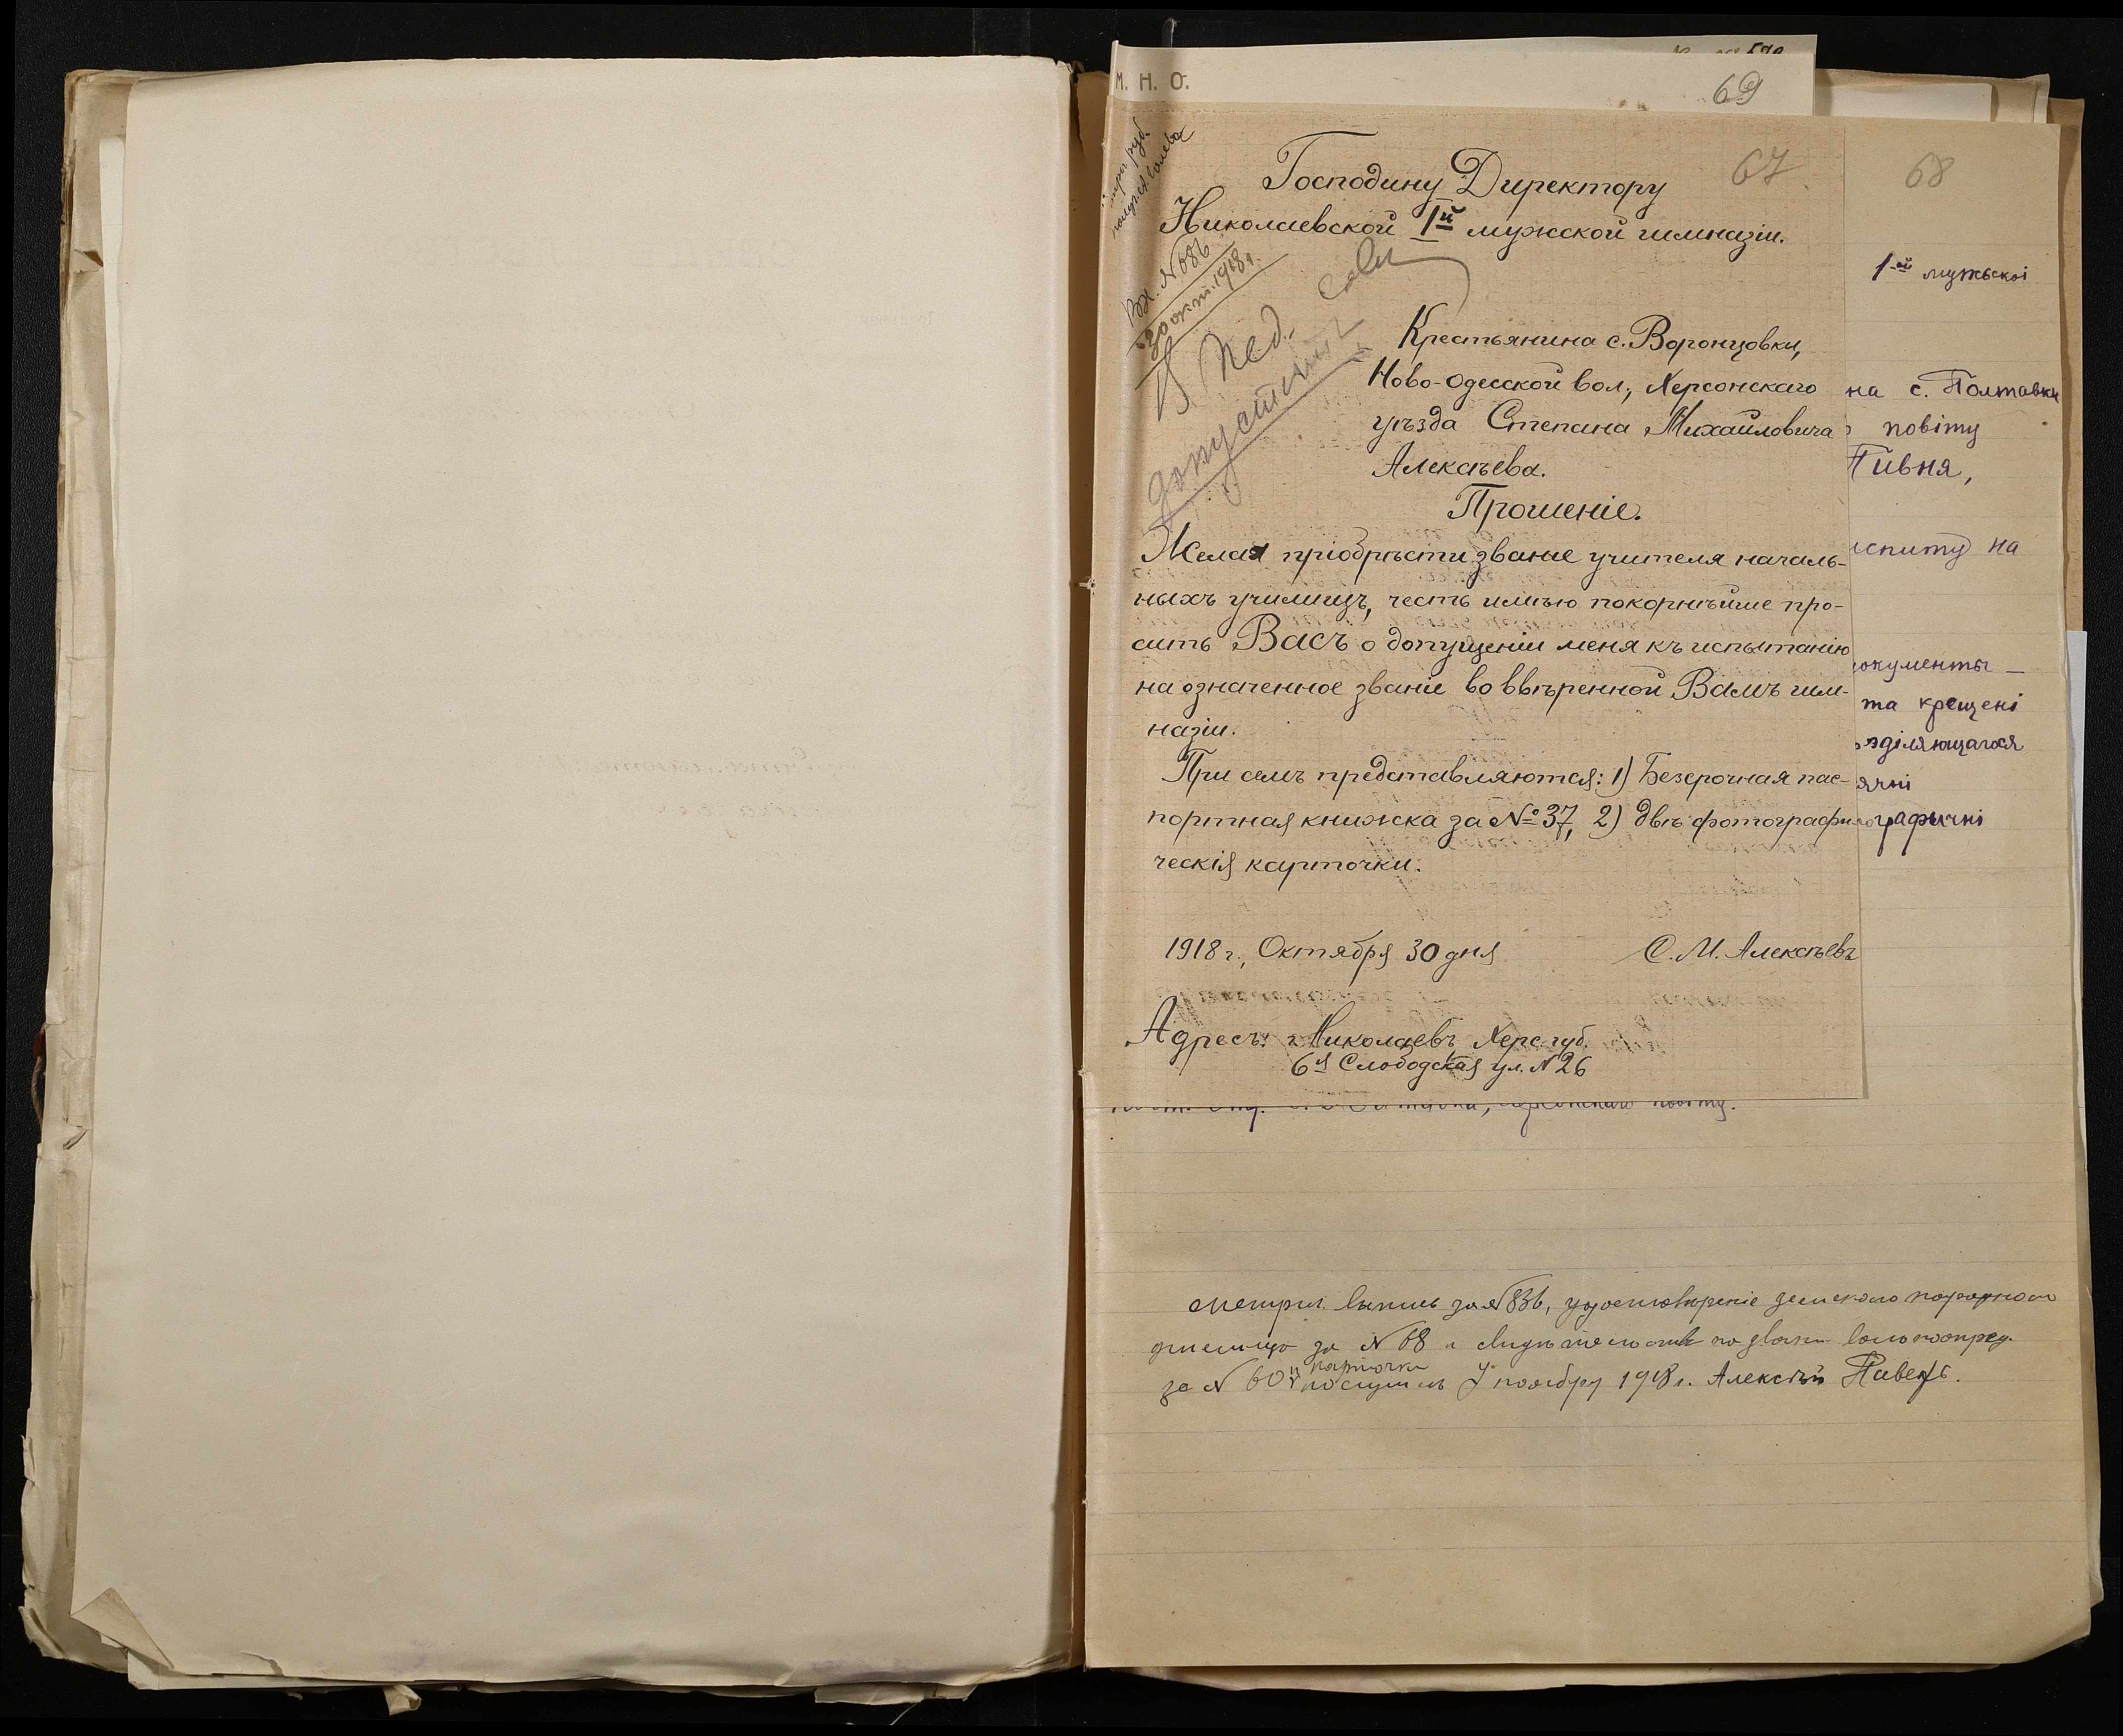 М. Н. О.
69
67
Господину Директору
Николаевской Iй мужской гимназіи.
Вх. № 686
30 окт. 1918 г.
В Пед.
допустить
Крестьянина с. Воронцовки,
Ново-Одесской вол., Херсонскаго
уѣзда Степана Михайловича
Алексѣева.
Прошеніе.
Желая пріобрѣсти званіе учителя началь-
ныхъ училищъ, честь имѣю покорнѣйше про-
сить Васъ о допущеніи меня къ испытанію
на означенное званіе во ввѣренной Вамъ гим-
назіи.
При семъ представляются: 1) Безсрочная пас-
портная книжка за № 37, 2) двѣ фотографи-
ческія карточки.
1918 г., Октября 30 дня
С. М. Алексѣевъ
Адресъ: г. Николаевъ Херс. губ.
6я Слободская ул. № 26
68
1-ой мужьскоі
на с. Полтавки
повіту
Пивня,
іспиту на
документы —
та крещені
ографичні
метрич. выпись за № 836, удостовѣреніе земскаго народнаго
училища за № 68 и
за № 60 и карточки получилъ 7 ноября 1918 г. Алексѣй Пивень.